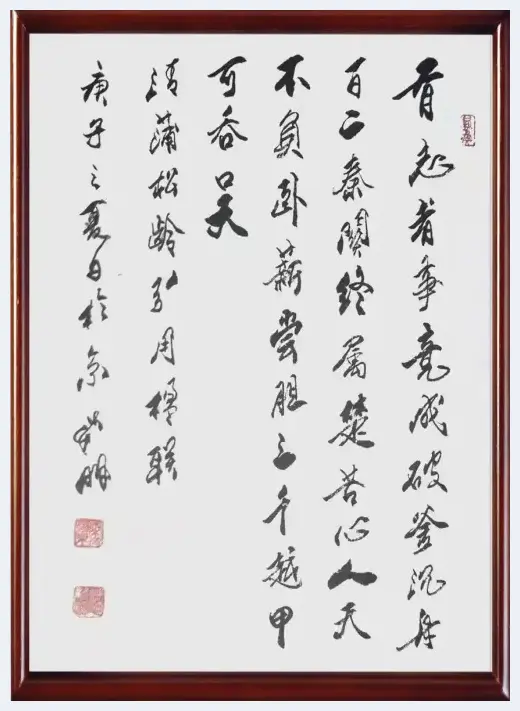 有志者事竟成破釜沉舟
百二秦關終屬楚苦心人天
不負卧薪嘗胆三千越甲
可吞吴
清蒲松齡引用楹联
庚子之夏日於京